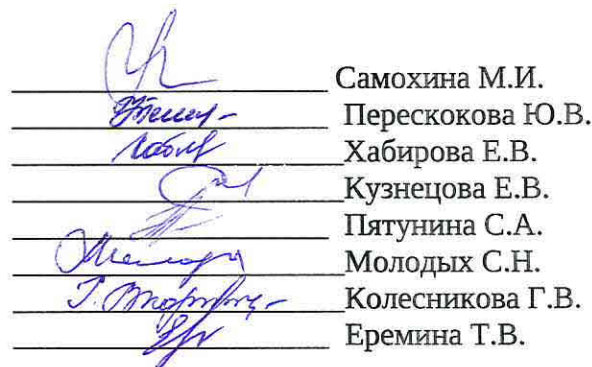 Самохина М.И.
Перескокова Ю.В.
Хабирова Е.В.
Кузнецова Е.В.
Пятунина С.А.
Молодых С.Н.
Колесникова Г.В.
Еремина Т.В.